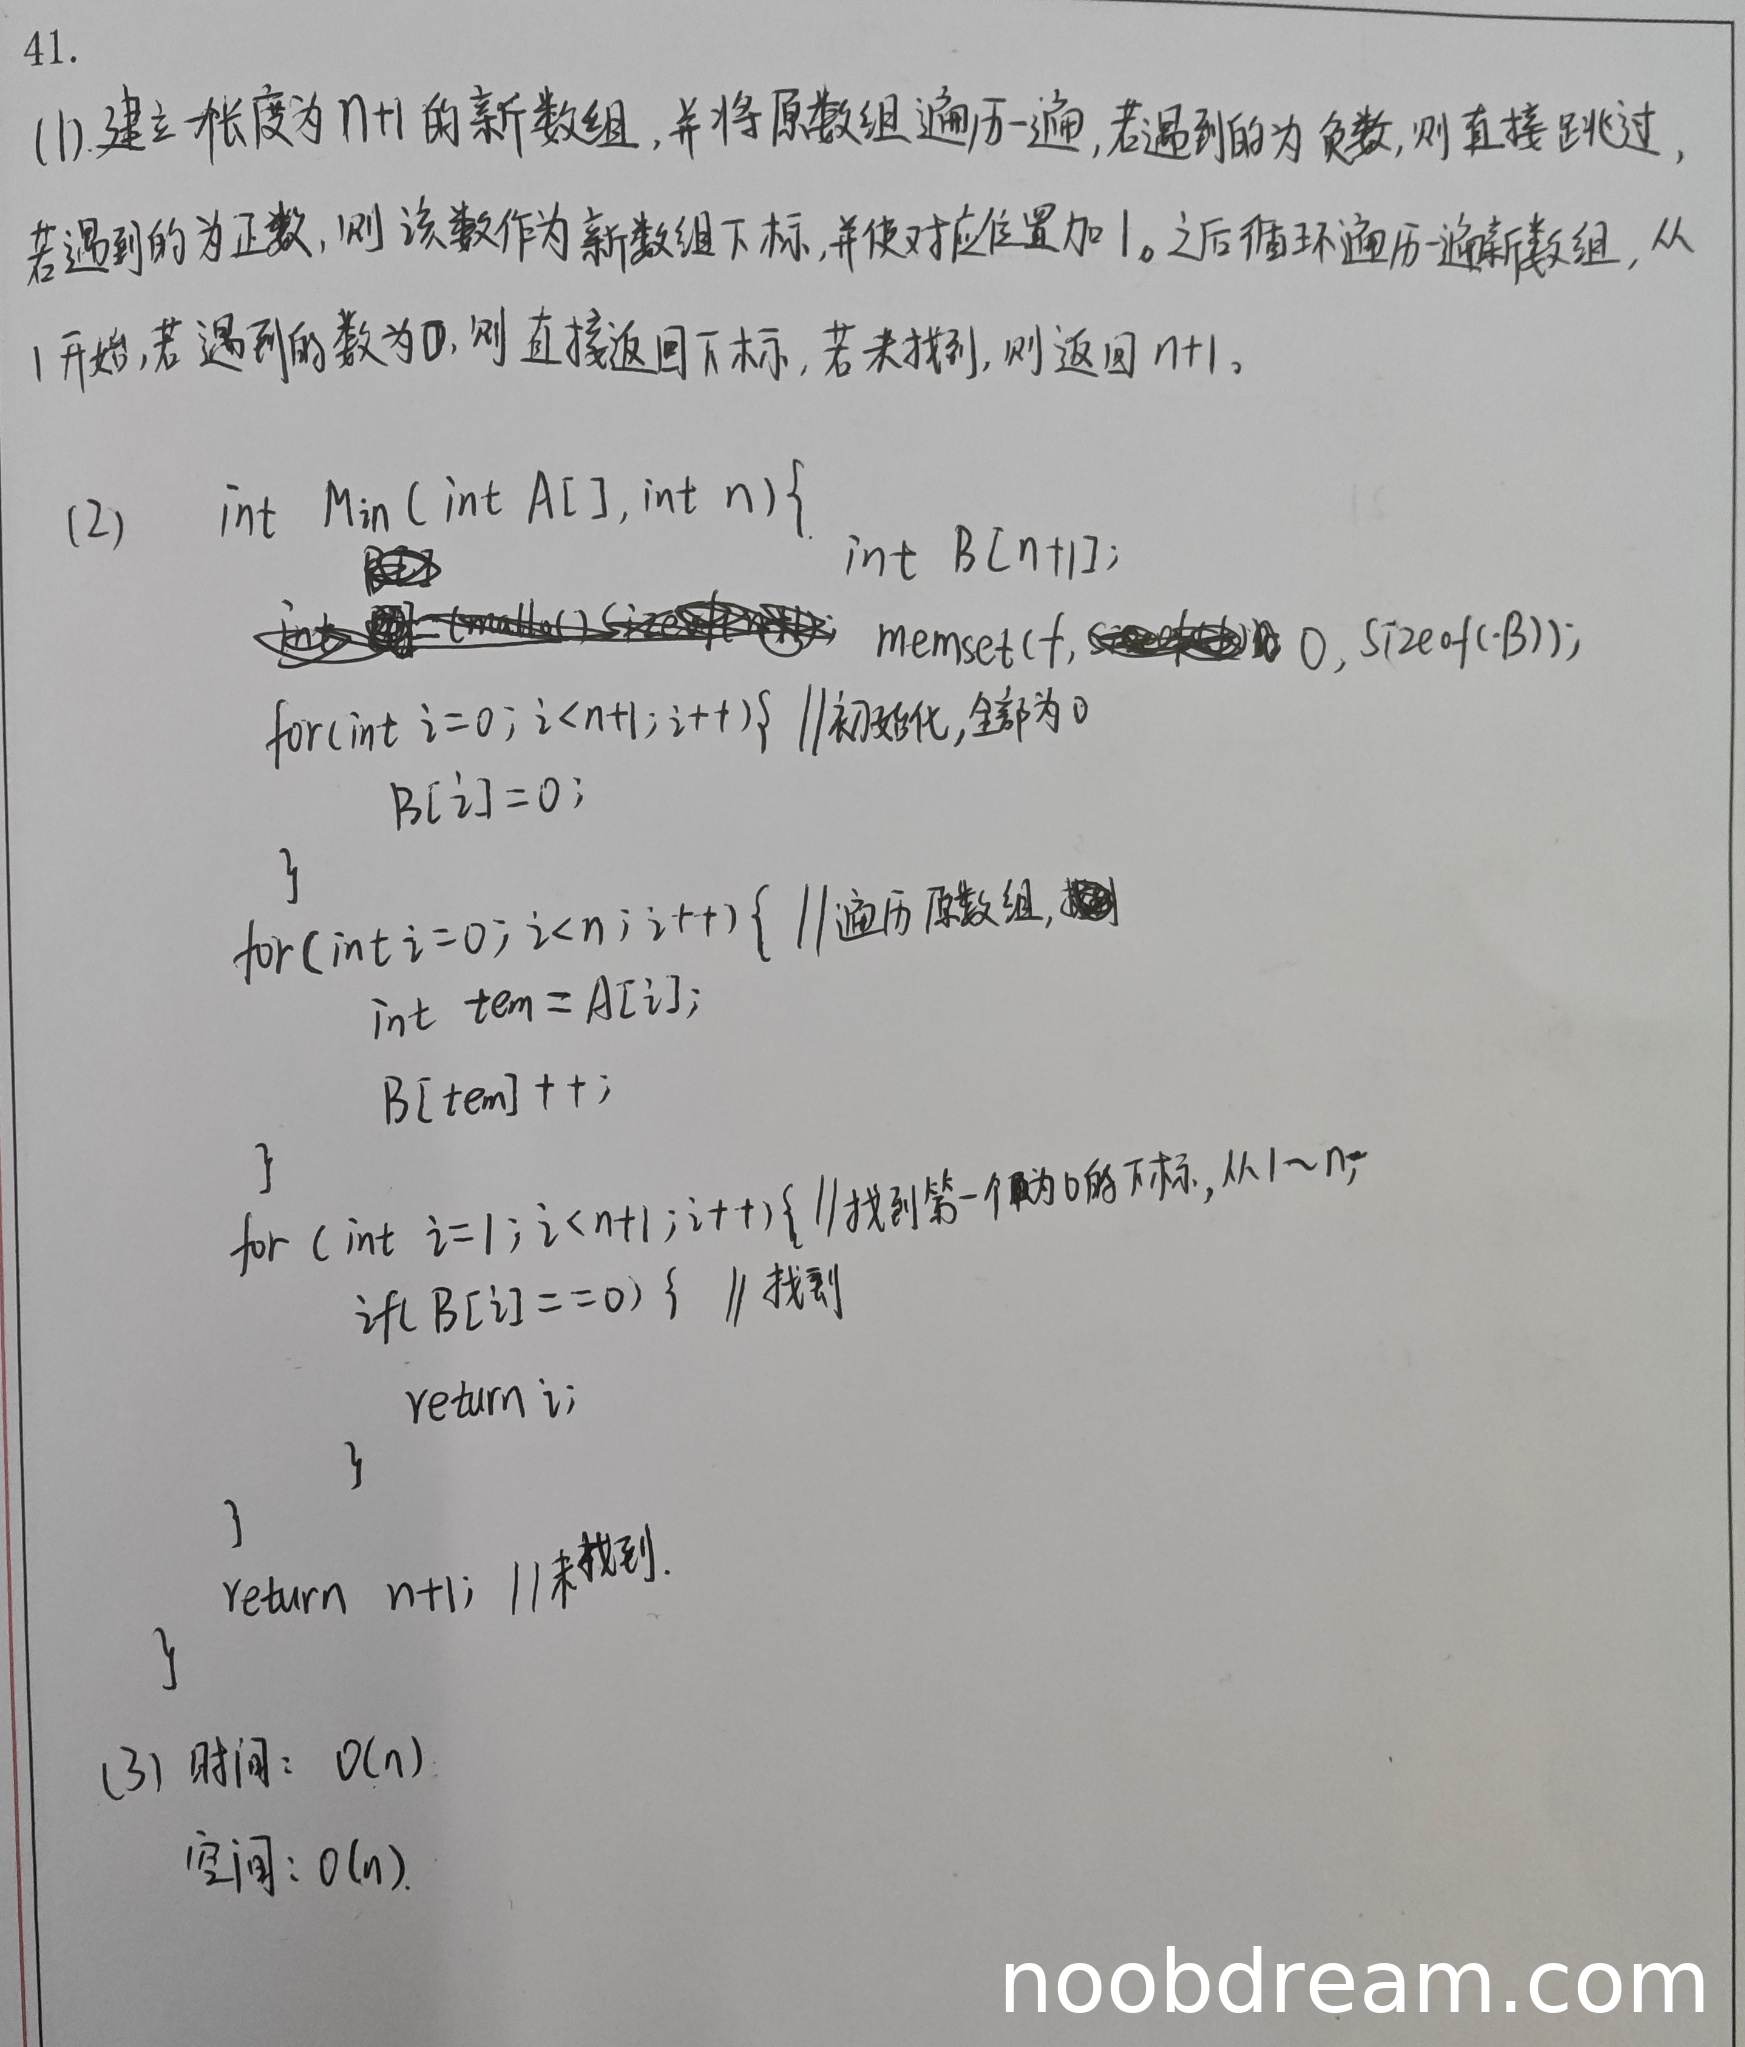 41.
(1).建立一长度为n+1的新数组,并将原数组遍历一遍,若遇到的为负数,则直接跳过,
若遇到的为正数,则该数作为新数组下标,并使对应位置加1。之后循环遍历一遍新数组,从
1开始,若遇到的数为0,则直接返回下标,若未找到,则返回n+1。
(2) int Min(int A[],int n){
int B[n+1];
memset(f, 0, sizeof(B));
for(int i=0;i<n+1;i++){ //初始化,全部为0
B[i]=0;
}
for(int i=0;i<n;i++){ //遍历原数组,
int tem=A[i];
B[tem]++;
}
for (int i=1;i<n+1;i++){ //找到第一个为0的下标,从1~n,
if(B[i]==0){ //找到
return i;
}
}
return n+1; //未找到.
}
(3) 时间: O(n)
空间: O(n).
noobdream.com